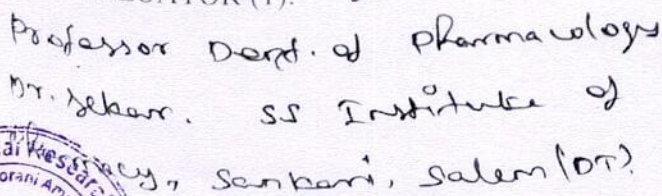 Professor Dept. of Pharmacology
Dr. Sekar. SS Institute of
Pharmacy, Sankari, Salem (DT).